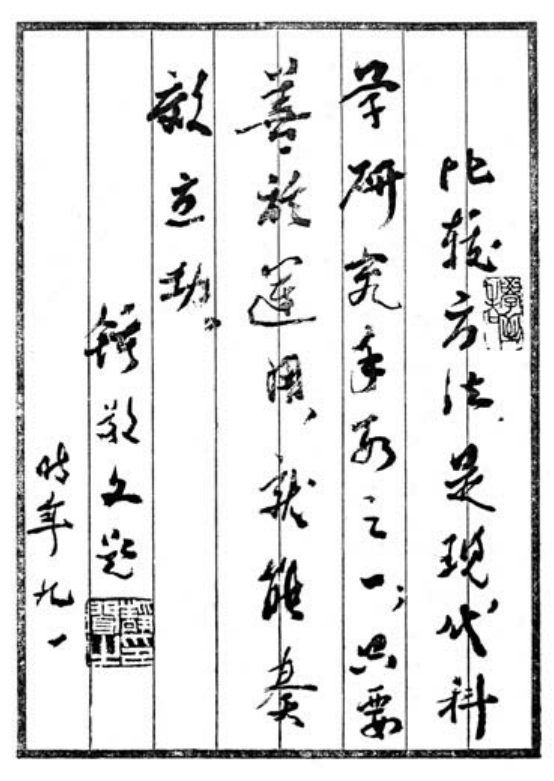 比较方法,是现代科
学研究手段之一,只要
善於运用,就能奏
效立功。
钟敬文题
时年九一